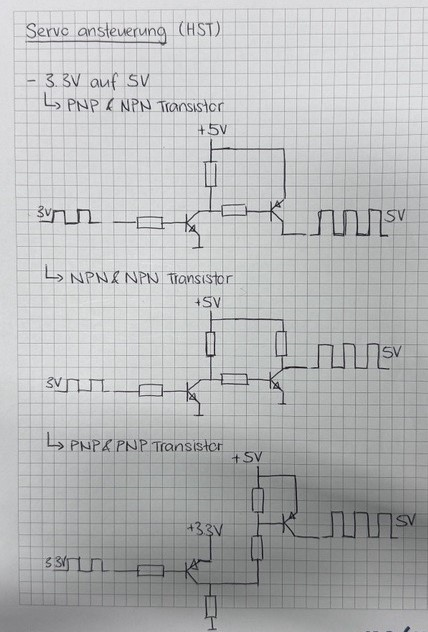 Servo ansteuerung (HST)
- 3.3V auf 5V
↳ PNP & NPN Transistor
+5V
3V
5V
↳ NPN & NPN Transistor
+5V
3V
5V
↳ PNP & PNP Transistor
+5V
+3.3V
5V
3.3V